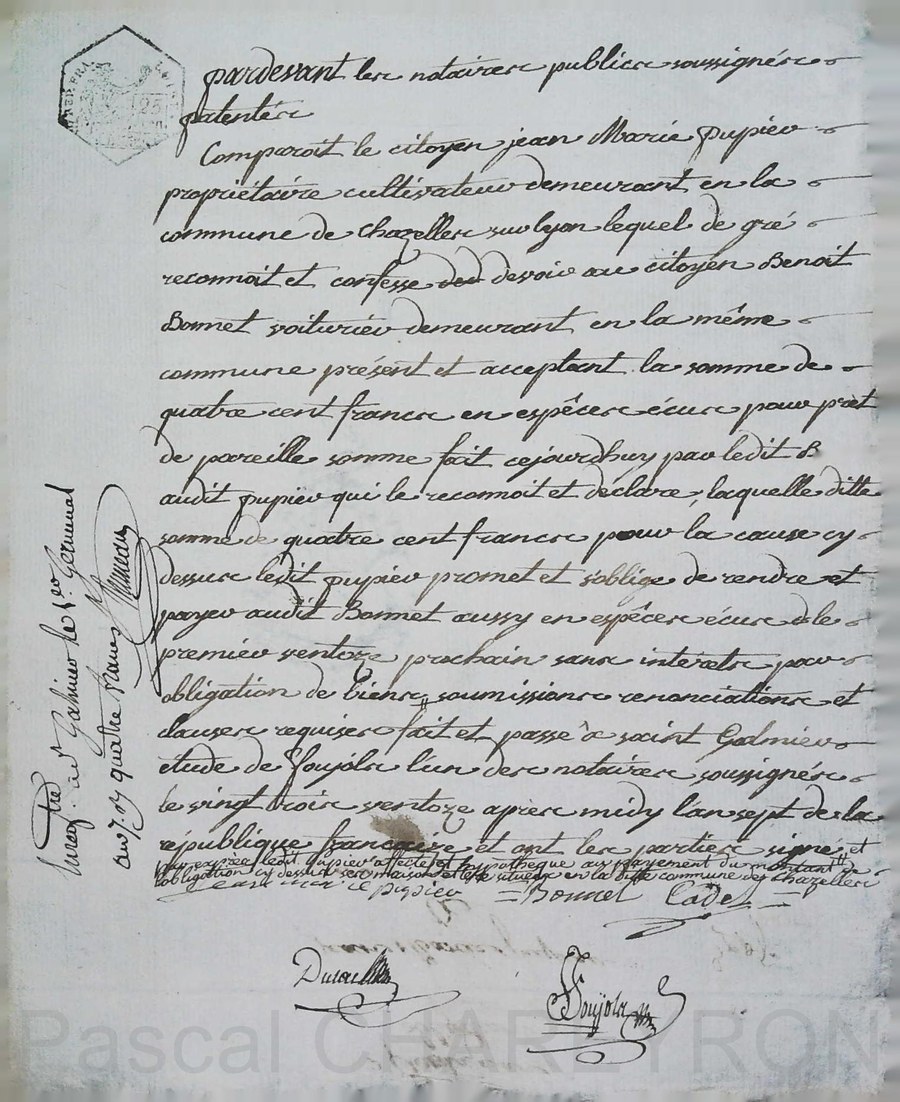 pardevant les notaires publics soussignés
patentés
Comparoit le citoyen jean Marie pupier
propriétaire cultivateur demeurant en la
commune de chazelles sur lyon lequel de gré
reconnoit et confesse devoir au citoyen Benoit
Bonnet voiturier demeurant en la même
commune présent et acceptant la somme de
quatre cent francs en espêces écus pour prêt
de pareille somme fait cejourdhuy par ledit B
audit pupier qui le reconnoit et déclare, laquelle ditte
somme de quatre cent francs pour la cause cy
dessus ledit pupier promet et s'oblige de rendre et
payer audit Bonnet aussy en espêces écus le
premier ventoze prochain sans intérêts pour
obligation de biens, soumissions renonciations et
clauses requises fait et passé à saint Galmier
étude de Soujols l'un des notaires soussignés
le vingt trois ventoze après midy l'an sept de la
république française et ont les parties signé et
par exprès ledit pupier affecte et hypothèque au payement du montant de
obligation cy dessus ses maison et situés en la ditte commune de Chazelles
jean marie pupier Bonnet Cade
Soujols
Enregtré à St Galmier le 1er germinal
an 7. quatre francs
Pascal CHAREYRON